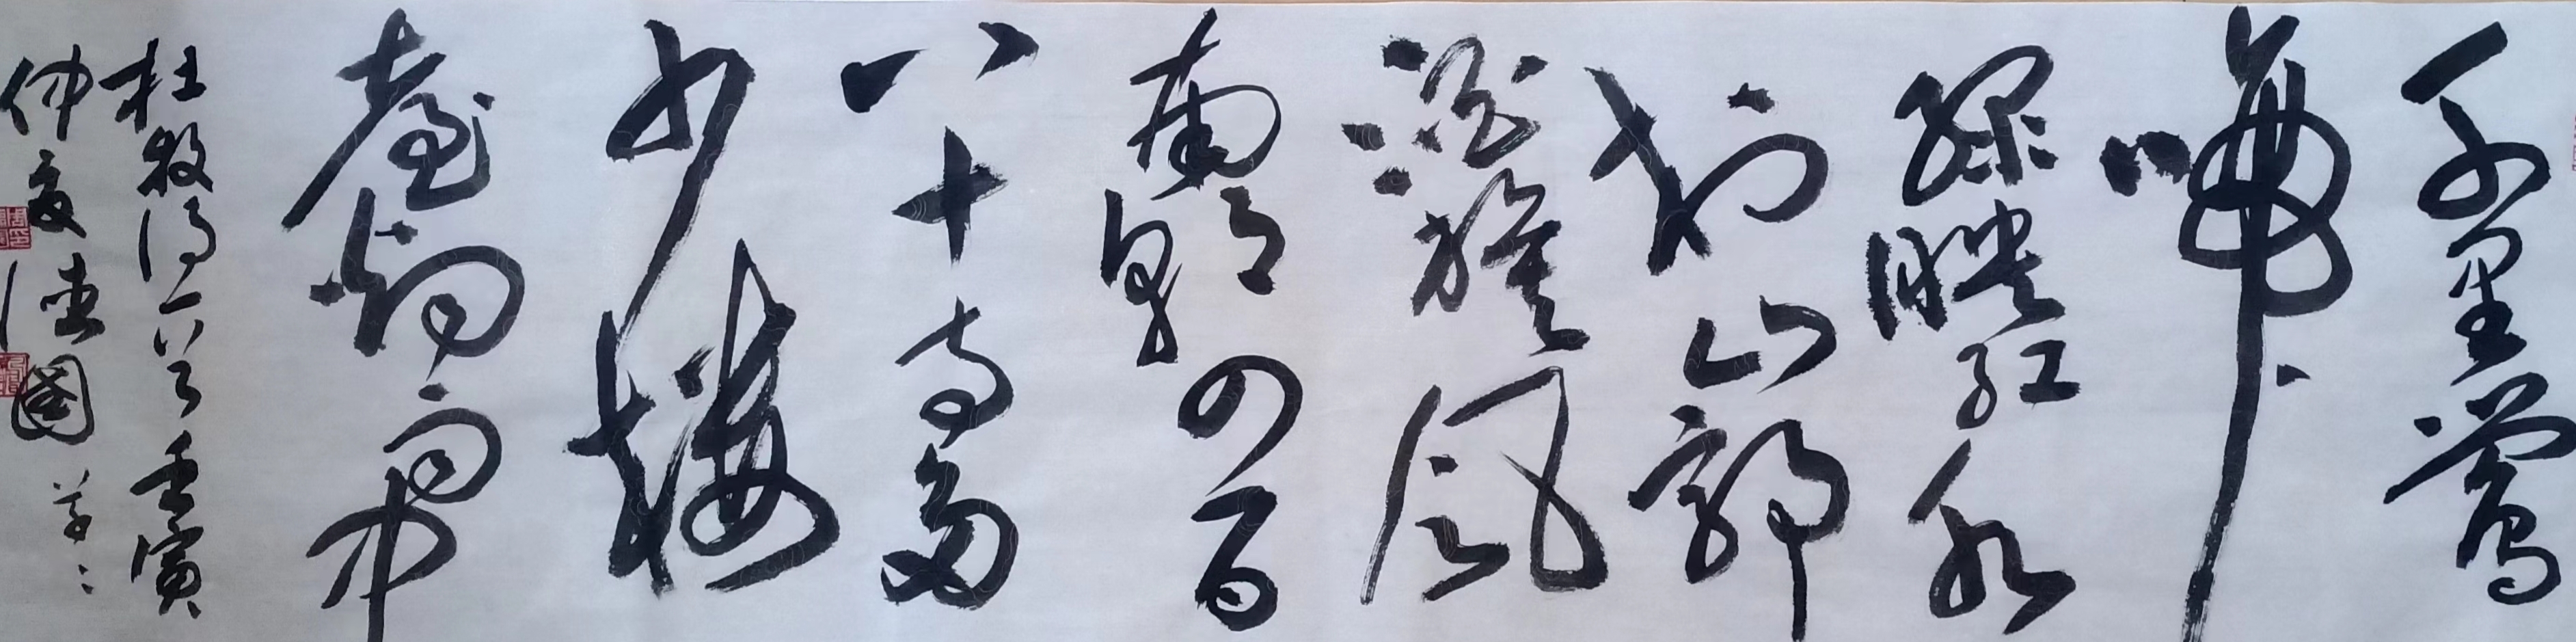 千里鶯
啼
綠映紅水
村山郭
酒旗風
南朝四百
八十寺多
少樓
臺烟雨中
杜牧詩一首壬寅
仲夏德國